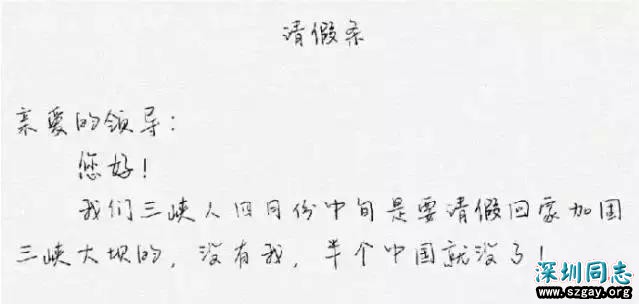 请假条
亲爱的领导：
您好！
我们三峡人四月份中旬是要请假回家加固
三峡大坝的，没有我，半个中国就没了！
深圳同志
www.szgay.org